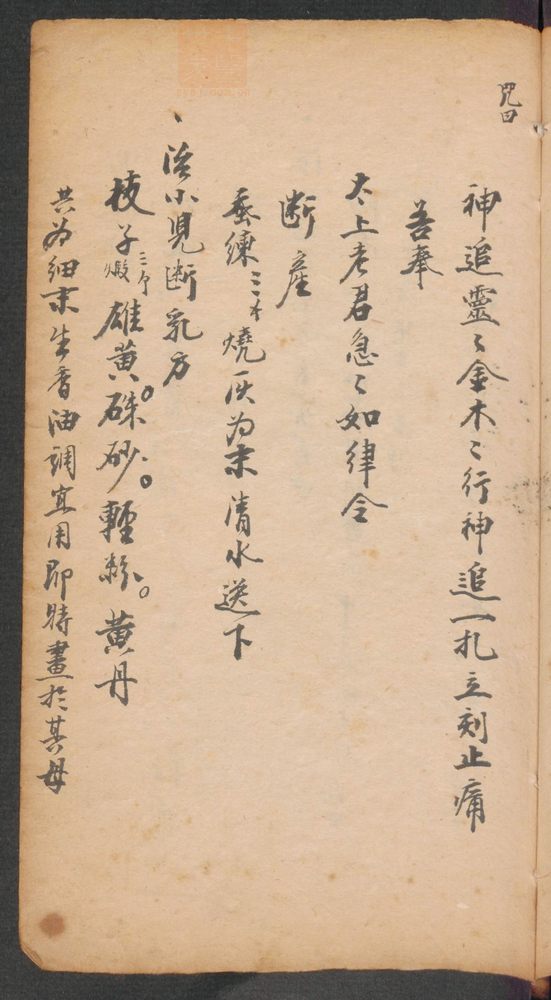 咒曰
神追靈〻金木〻行神追一扎立刻止痛
吾奉
太上老君急〻如律令
断産
蚕練三个燒灰为末清水送下
治小児断乳方
枝子三个煅雄黄。硃砂。輕粉。黄丹
共为细末生香油調宜用即時畫於其母